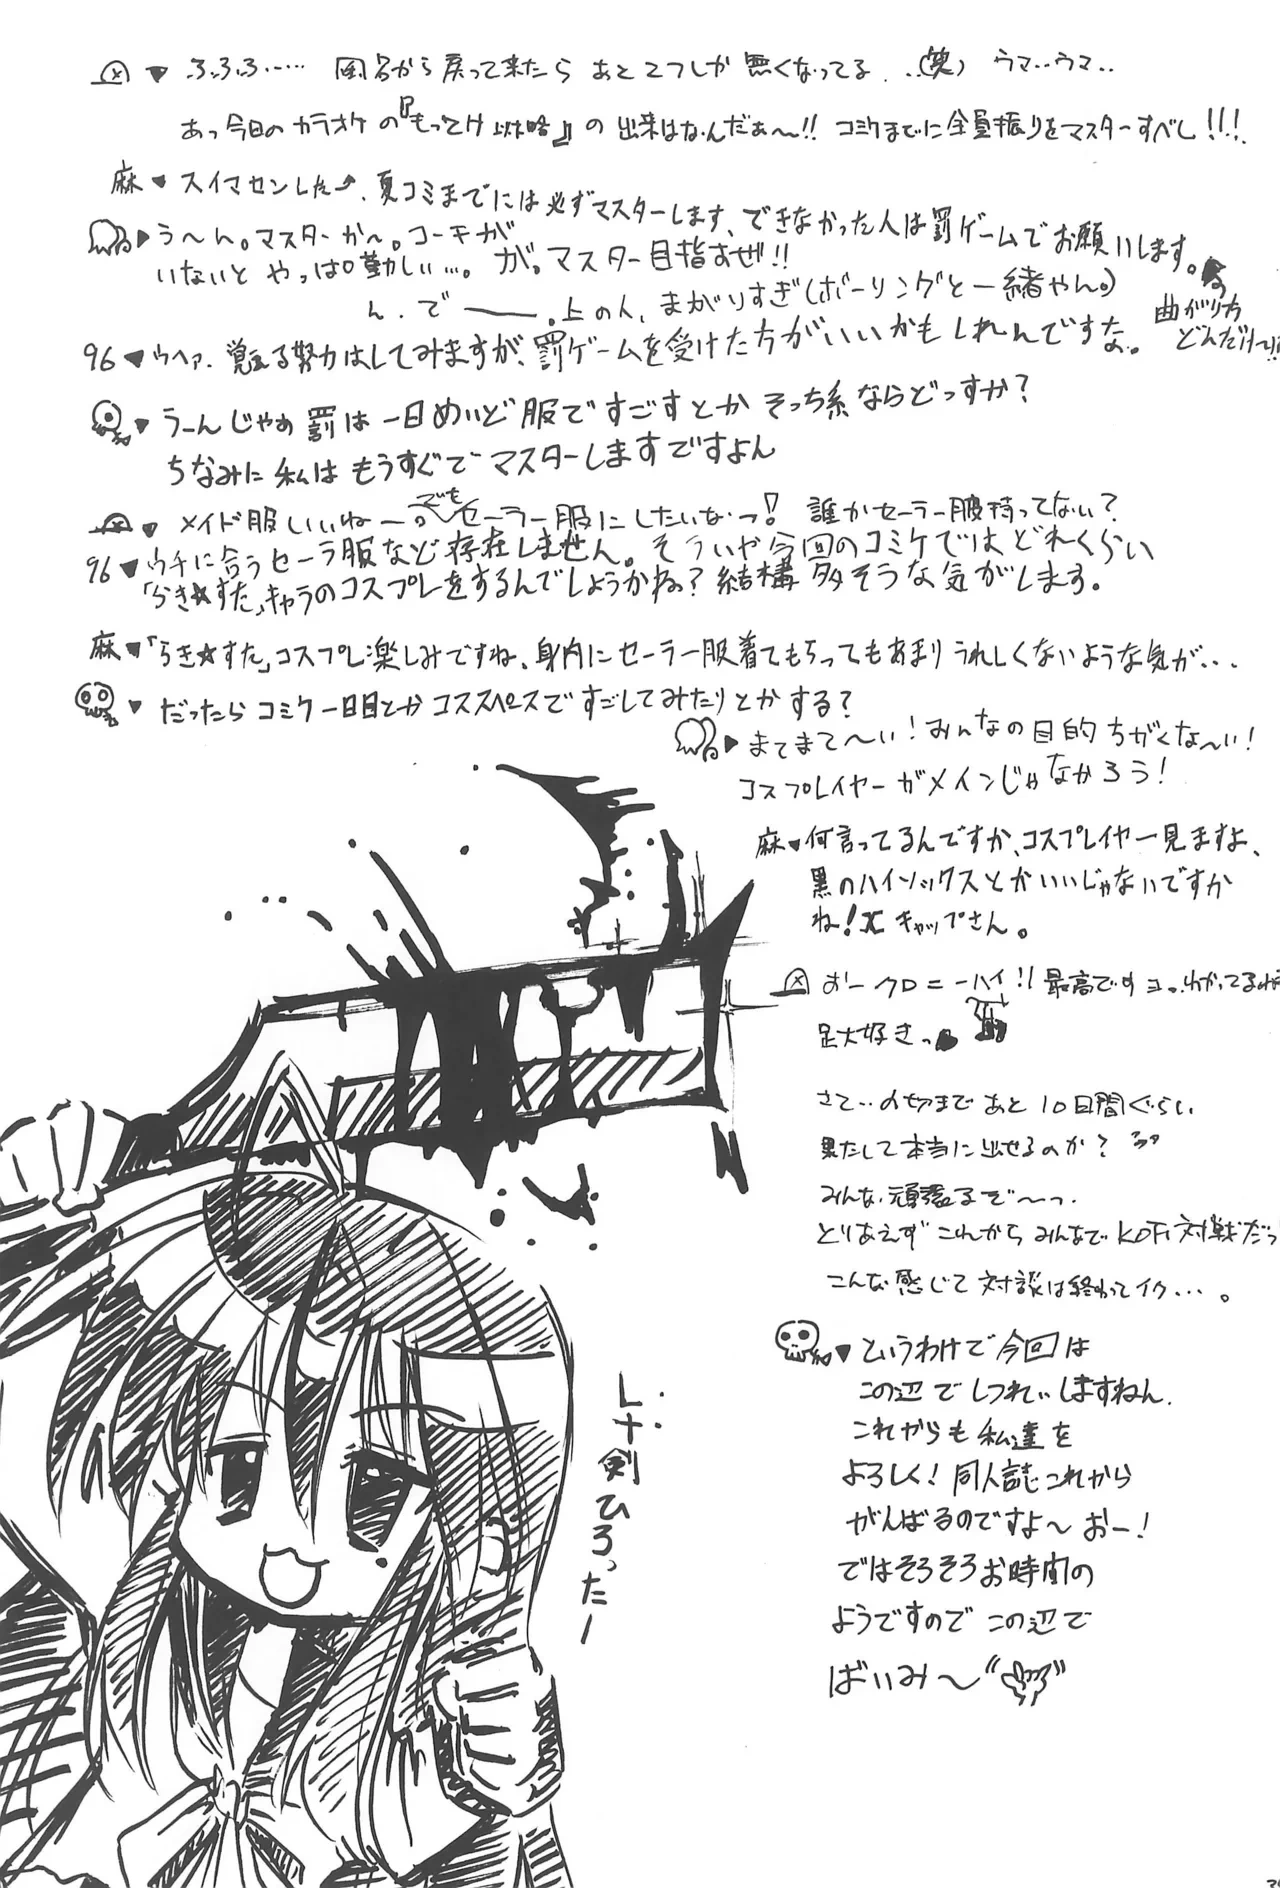 ふ、ふ、ふ…… から戻って来たら あと 2つしか 無くなってる…(笑) ウマ‥ウマ‥
あっ今日のカラオケの『もってけ 以下略』の 出来はなんだぁ〜!! コミケまでに全員振りをマスターすべし!!!
麻♥スイマセンした、夏コミまでには必ずマスターします、できなかった人は罰ゲームでお願いします。
う〜ん。マスターか〜。コーチが
いないと やっぱ 厳しい…。が。マスター目指すぜ!!
ん.で ――.上の人、まがりすぎ(ボーリングと一緒やん。)
曲がり方
どんだけ〜!!
96♥ウヘァ. 覚える努力はしてみますが、罰ゲームを受けた方がいいかもしれんですな。
うーんじゃぁ 罰は 一日めいど服ですごすとか そっち系ならどっすか?
ちなみに 私は もうすぐで マスターしますですよん
メイド服 いいねー でもセーラー服にしたいなっ! 誰かセーラー服持ってない?
96♥ウチに合うセーラ服など存在しません。そういや今回のコミケではどれくらい
「らき☆すた」キャラのコスプレをするんでしょうかね?結構 多そうな気がします。
麻♥「らき☆すた」コスプレ楽しみですね、身内にセーラー服着てもらってもあまりうれしくないような気が...
だったら コミケ一日目とか コススペースですごしてみたりとかする?
まてまて〜い!みんなの目的ちがくな〜い!
コスプレイヤーがメインじゃなかろう!
麻♥何言ってるんですか、コスプレイヤー見ますよ、
黒のハイソックスとかいいじゃないですか
ね! キャップさん。
おー クロニーハイ!! 最高ですヨっ.わかってるね
足大好きっ
さて‥〆切まで あと10日間ぐらい
果たして本当に出せるのか?
みんな 頑張るぞ〜っ.
とりあえず これから みんなで KOF対戦だっ!
こんな感じて 対談は終わってイク...。
というわけで今回は
この辺で しつれいしますねん.
これからも 私達を
よろしく! 同人誌これから
がんばるのですよ〜 おー!
ではそろそろお時間の
ようですので この辺で
ばいみ〜
レナ剣ひろったー